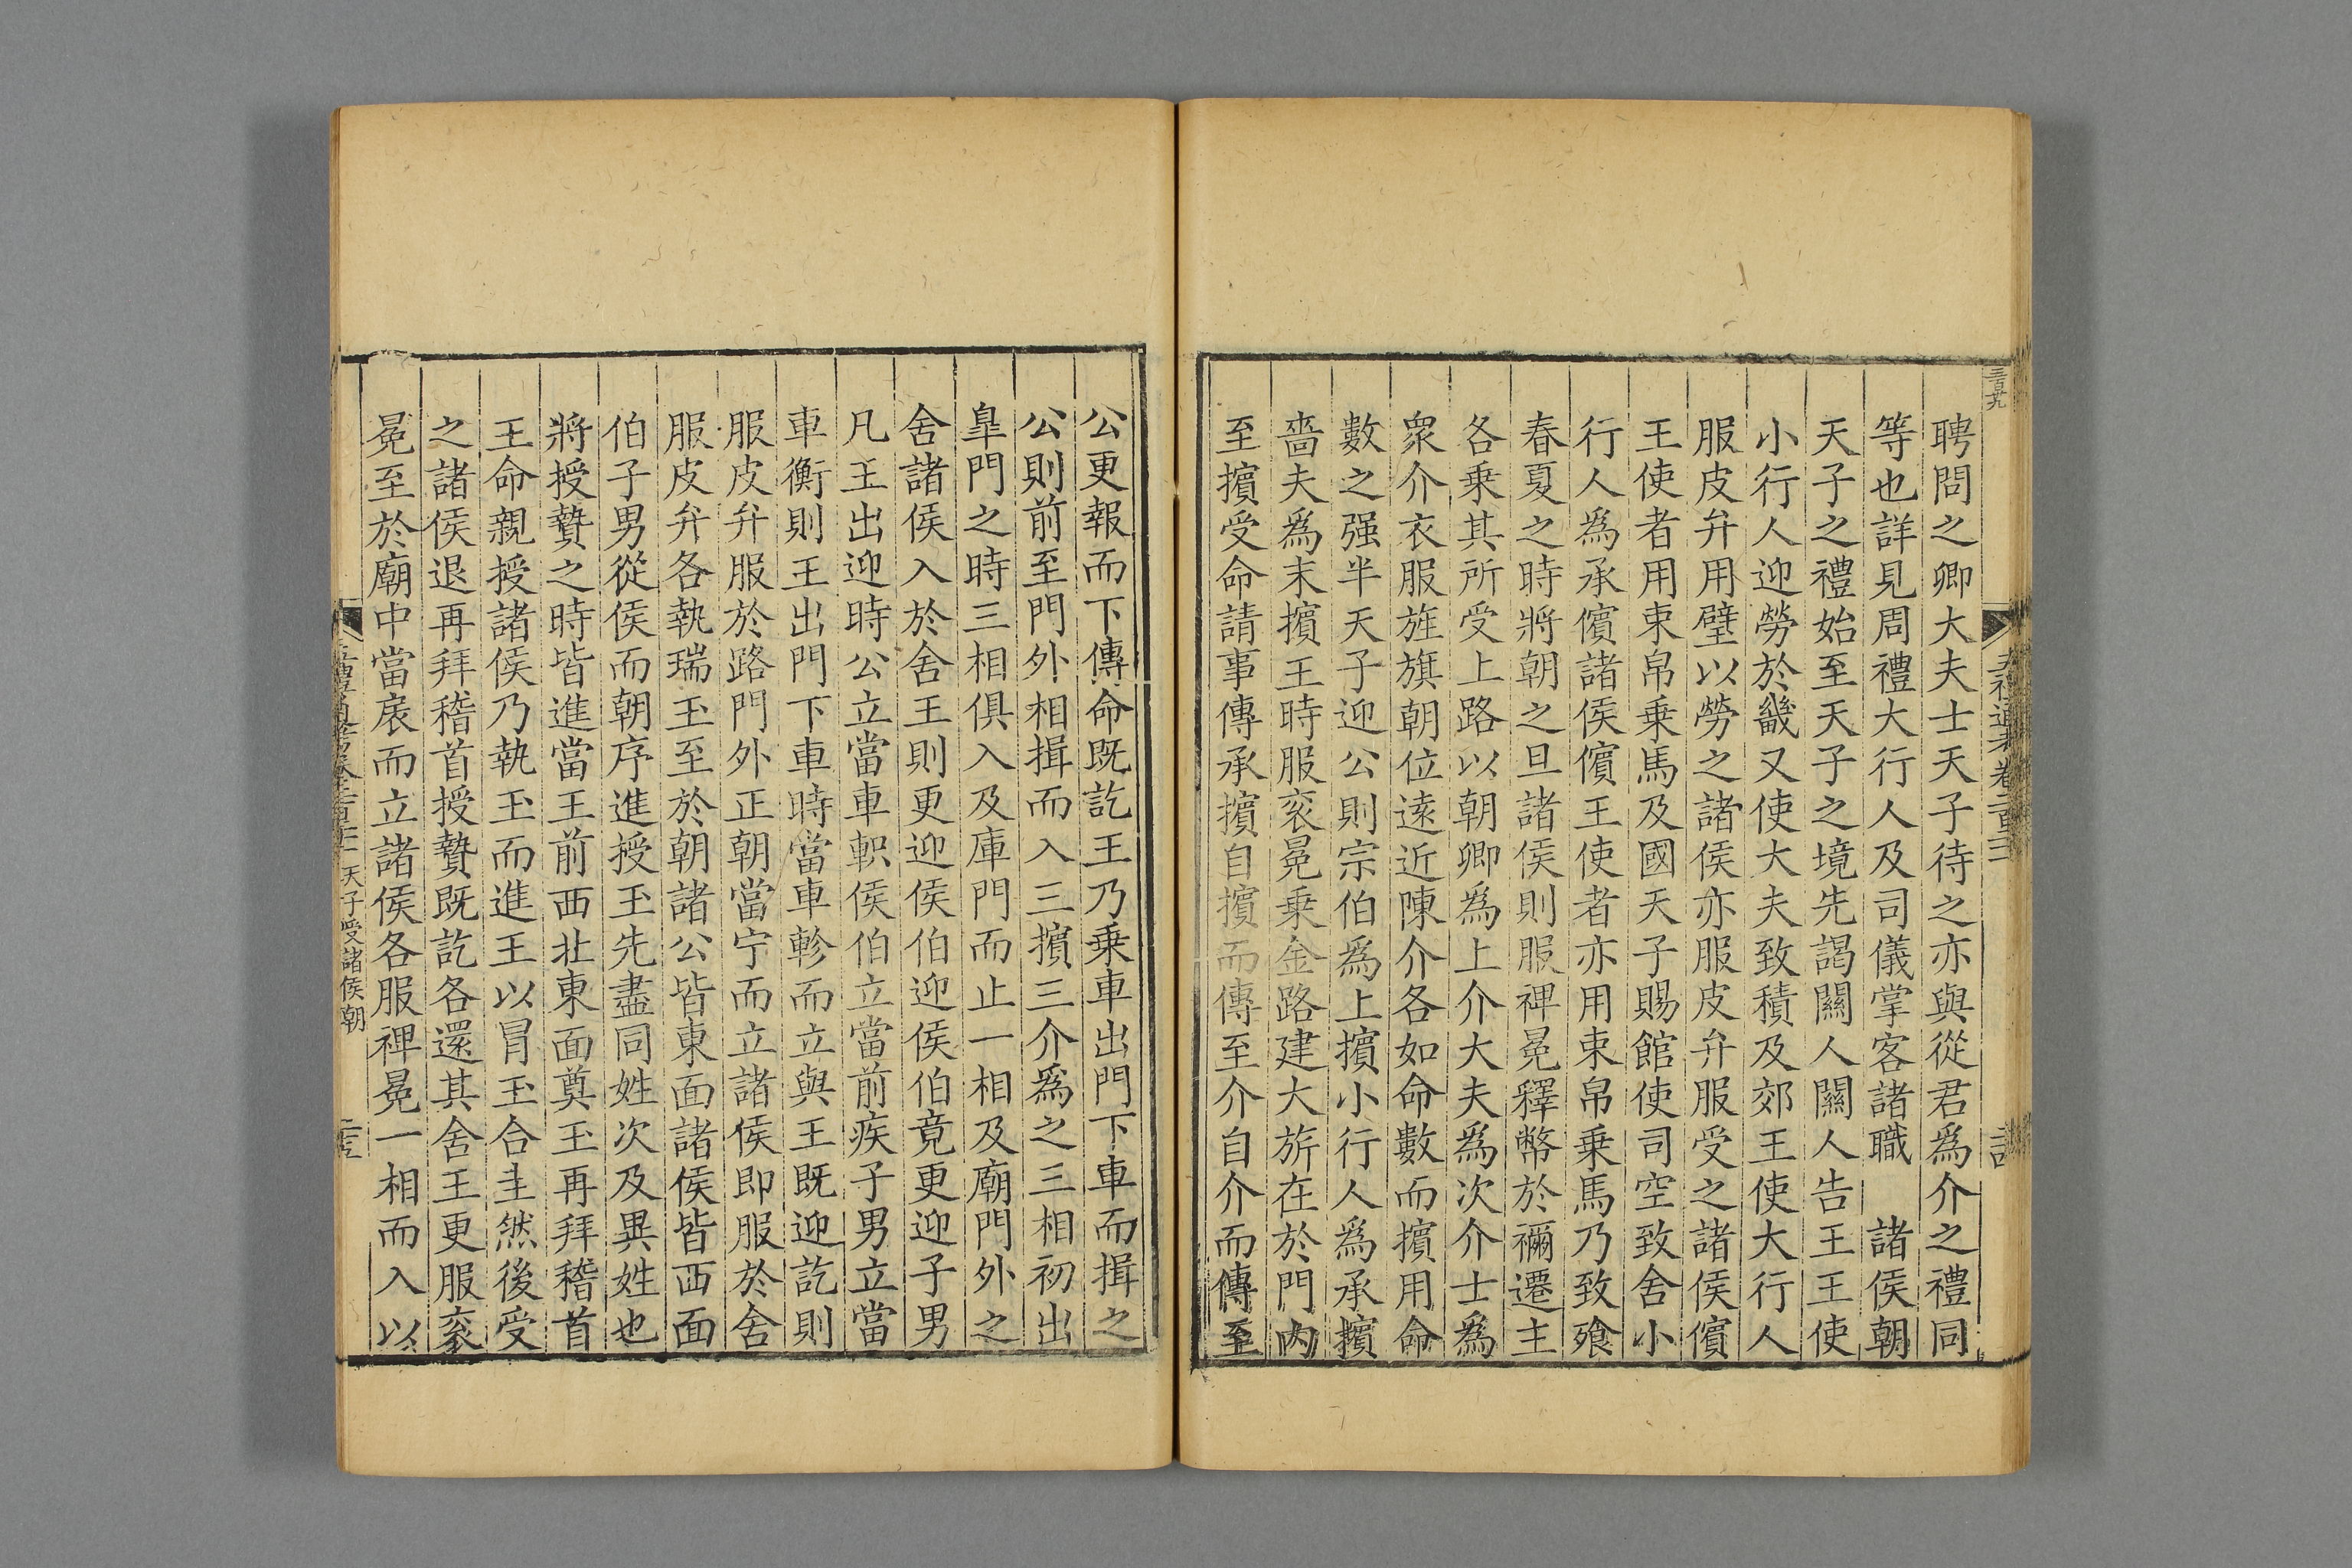 聘問之卿大夫士天子待之亦與從君爲介之禮同
等也詳見周禮大行人及司儀掌客諸職　諸侯朝
天子之禮始至天子之境先謁關人關人告王王使
小行人迎勞於畿又使大夫致積及郊王使大行人
服皮弁用璧以勞之諸侯亦服皮弁服受之諸侯儐
王使者用束帛乗馬及國天子賜館使司空致舍小
行人爲承儐諸侯儐王使者亦用束帛乗馬乃致飧
春夏之時將朝之旦諸侯則服裨冕釋幣於禰遷主
各乗其所受上路以朝卿爲上介大夫爲次介士爲
衆介衣服旌旗朝位遠近陳介各如命數而擯用命
數之强半天子迎公則宗伯爲上擯小行人爲承擯
嗇夫爲末擯王時服衮冕乗金路建大旂在於門內
至擯受命請事傳承擯自擯而傳至介自介而傳至
公更報而下傳命既訖王乃乗車出門下車而揖之
公則前至門外相揖而入三擯三介爲之三相初出
臯門之時三相俱入及庫門而止一相及廟門外之
舍諸侯入於舍王則更迎侯伯迎侯伯竟更迎子男
凡王出迎時公立當車軹侯伯立當前疾子男立當
車衡則王出門下車時當車軫而立與王既迎訖則
服皮弁服於路門外正朝當宁而立諸侯即服於舍
服皮弁各執瑞玉至於朝諸公皆東面諸侯皆西面
伯子男從侯而朝序進授玉先盡同姓次及異姓也
將授贄之時皆進當王前西北東面奠玉再拜稽首
王命親授諸侯乃執玉而進王以冒玉合圭然後受
之諸侯退再拜稽首授贄既訖各還其舍王更服衮
冕至於廟中當扆而立諸侯各服裨冕一相而入以
天子受諸侯朝